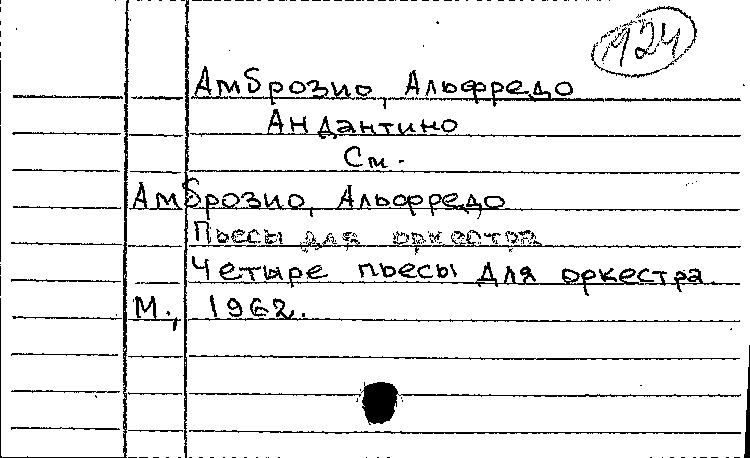 124
Амброзио, Альфредо
Андантино
См.
Амброзио, Альфредо
Пьесы для оркестра
Четыре пьесы для оркестра.
М., 1962.